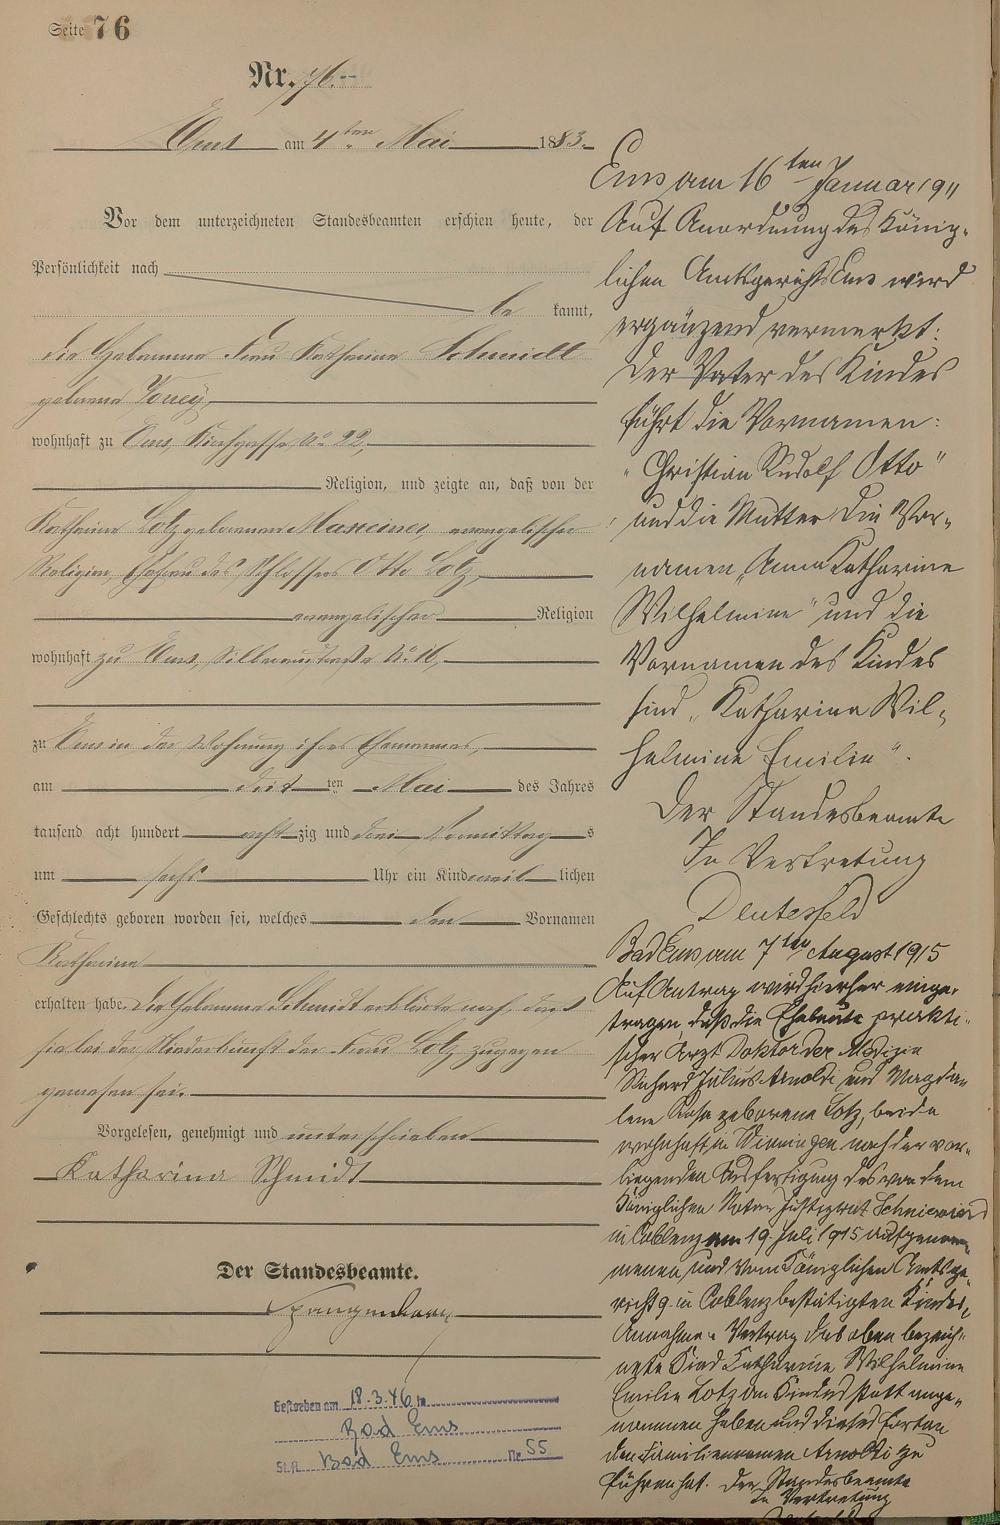 Seite 76
Nr. 76.
Ems am 4ten Mai 1883.
Vor dem unterzeichneten Standesbeamten erschien heute, der
Persönlichkeit nach
be kannt,
die Hebamme Frau Katharina Schmidt
geborene
wohnhaft zu Ems, Kirchgasse No 22,
Religion, und zeigte an, daß von der
Katharina Lotz geborenen evangelischer
Religion, Ehefrau des Schlossers Otto Lotz,
evangelischer Religion
wohnhaft zu Ems, Silberaustraße No 16,
zu Ems in der Wohnung ihres Ehemannes,
am ten Mai des Jahres
tausend acht hundert acht zig und drei Vormittag s
um sechs Uhr ein Kind weib lichen
Geschlechts geboren worden sei, welches den Vornamen
Katharina
erhalten habe. Die Hebamme Schmidt erklärte noch, daß
sie bei der Niederkunft der Frau Lotz zugegen
gewesen sei.
Vorgelesen, genehmigt und unterschrieben
Katharina Schmidt
Der Standesbeamte.
Spangenberg
Gestorben am 18.3.46 in
Bad Ems
St.A. Bad Ems Nr. 55
Ems am 16ten Januar 1911
Auf Anordnung des König-
lichen Amtsgerichts Ems wird
ergänzend vermerkt:
Der Vater des Kindes
führt die Vornamen:
"Christian Rudolf Otto"
und die Mutter die Vor-
namen "Anna Katharina
Wilhelmine" und die
Vornamen des Kindes
sind "Katharina Wil-
helmine Emilie".
Der Standesbeamte
In Vertretung
Deutesfeld
Bad Ems am 7ten August 1915
Auf Antrag wird hierher einge-
tragen, daß die Eheleute prakti-
scher Arzt Doktor der Medizin
Richard Julius Arnoldi und Magda-
lene Rosa geborene Lotz, beide
wohnhaft in Winningen nach der vor-
liegenden Ausfertigung des von dem
Königlichen Notar Justizrat Schniewind
in Coblenz am 19. Juli 1915 aufgenom-
menen und vom Königlichen Amtsge-
richt 9. in Coblenz bestätigten Kindes-
Annahme-Vertrag das oben bezeich-
nete Kind Katharina Wilhelmine
Emilie Lotz an Kindesstatt ange-
nommen haben und dieses fortan
den Familiennamen Arnoldi zu
führen hat. Der Standesbeamte
In Vertretung